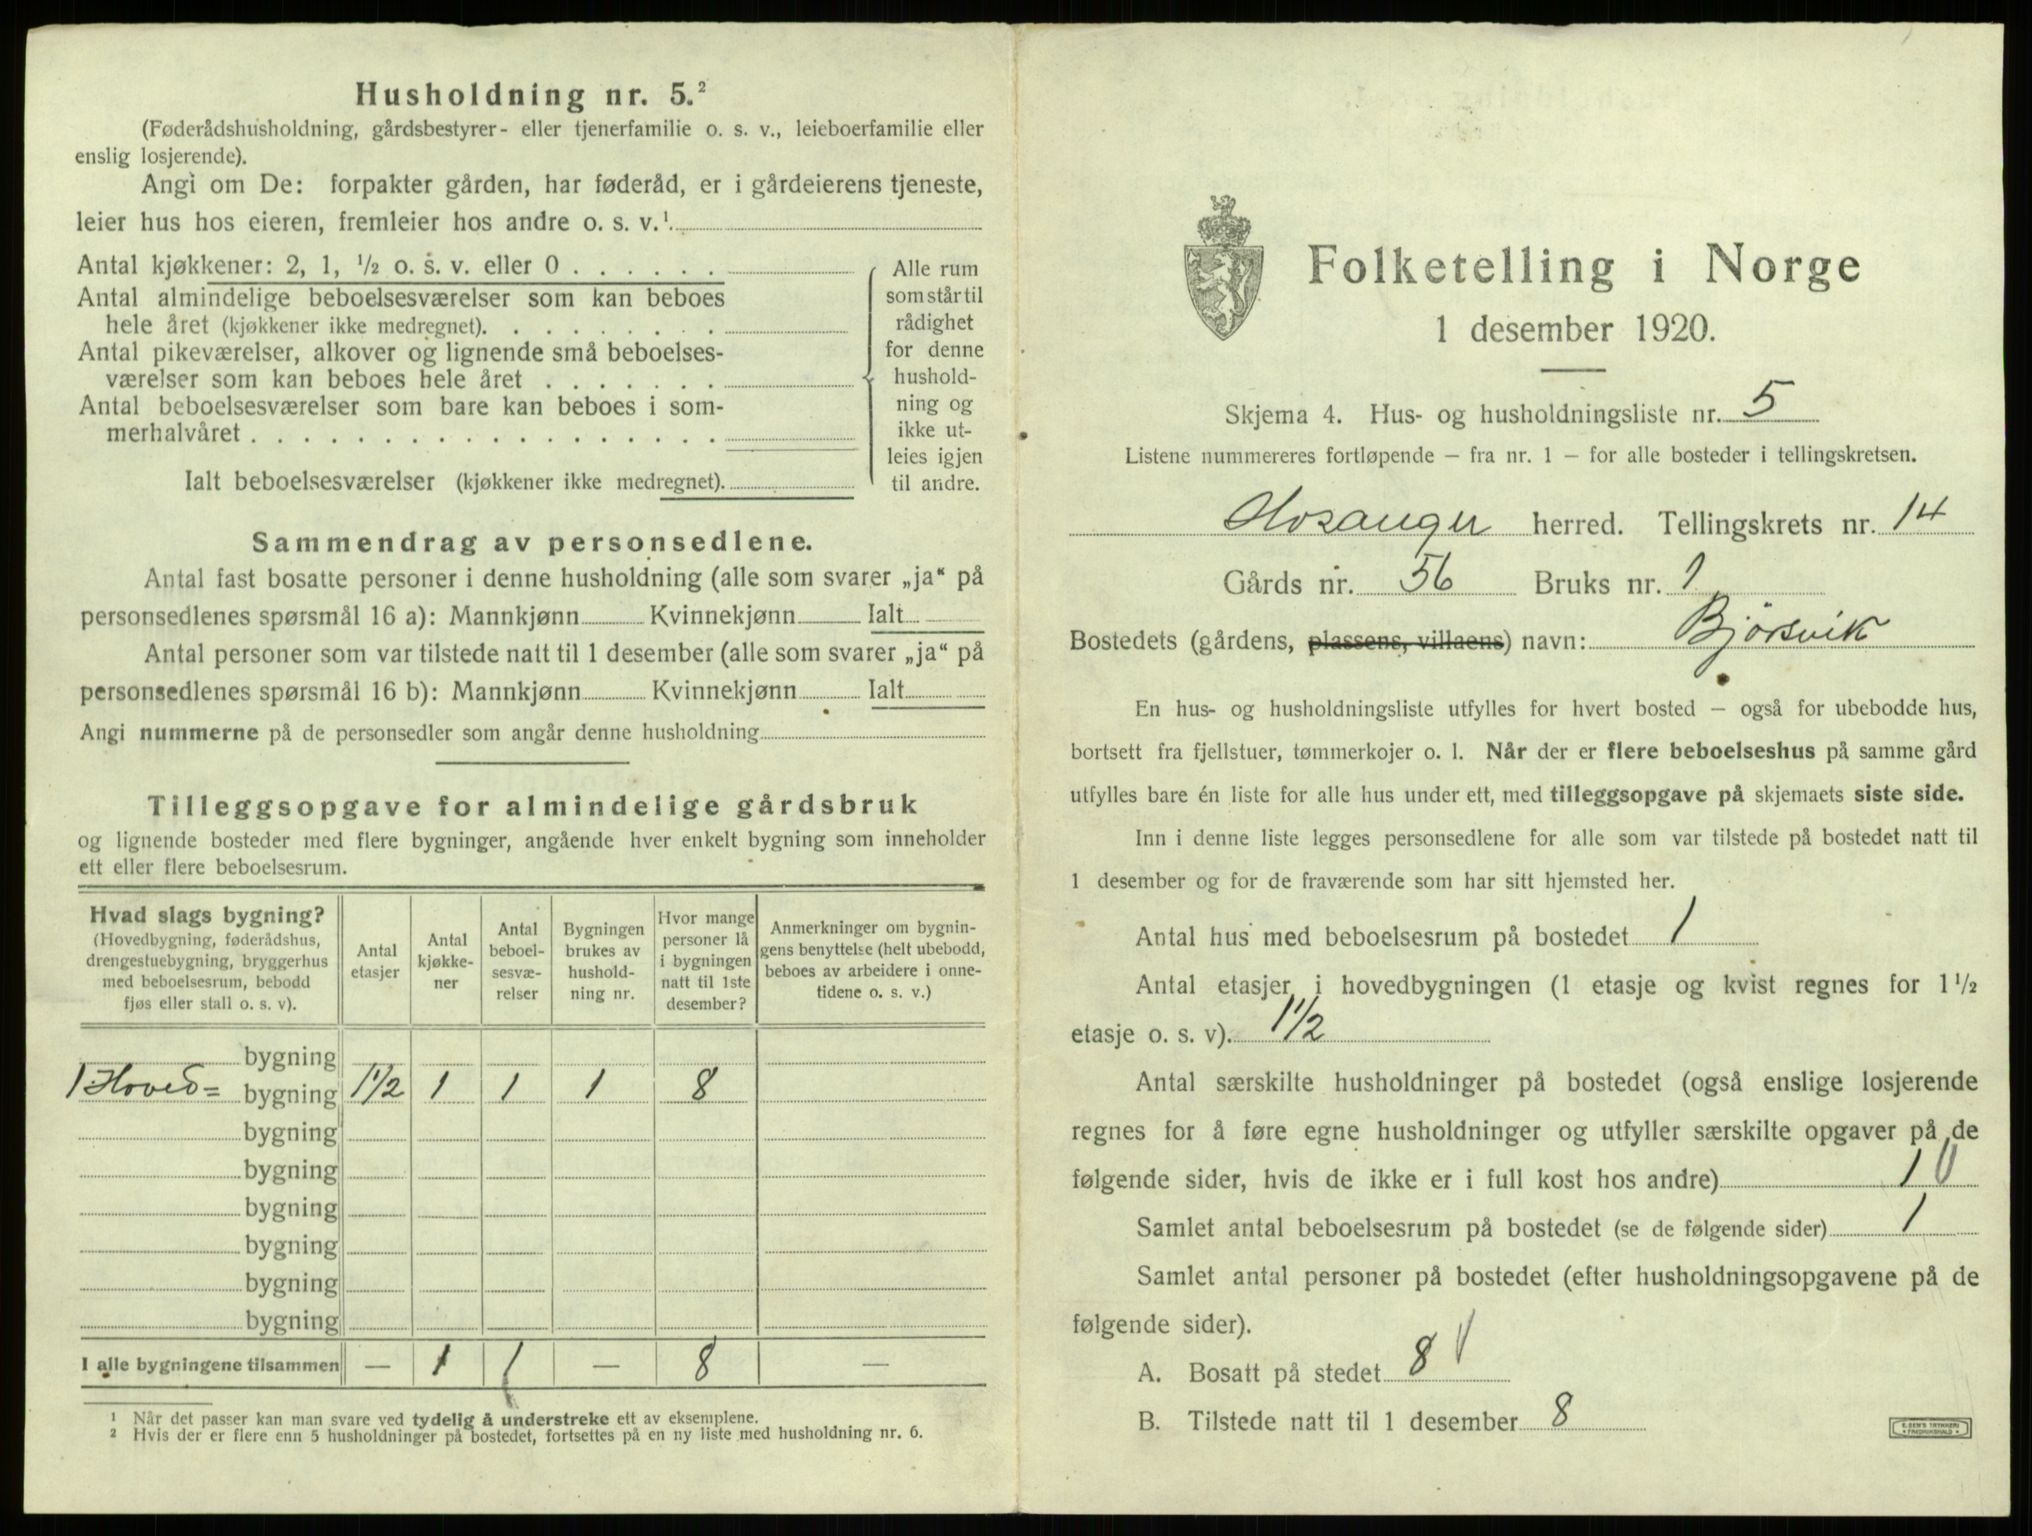 Husholdning nr. 5.²
(Føderådshusholdning, gårdsbestyrer- eller tjenerfamilie o. s. v., leieboerfamilie eller
enslig losjerende).
Angi om De: forpakter gården, har føderåd, er i gårdeierens tjeneste,
leier hus hos eieren, fremleier hos andre o. s. v.¹
Antal kjøkkener: 2, 1, ½ o. s. v. eller 0 . . . . . .
Antal almindelige beboelsesværelser som kan beboes
hele året (kjøkkener ikke medregnet). . . . . . . . .
Antal pikeværelser, alkover og lignende små beboelses-
værelser som kan beboes hele året . . . . . . .
Antal beboelsesværelser som bare kan beboes i som-
merhalvåret . . . . . . . . . . . . . . . . . .
Ialt beboelsesværelser (kjøkkener ikke medregnet).
Alle rum
som står til
rådighet
for denne
hushold-
ning og
ikke ut-
leies igjen
til andre.
Sammendrag av personsedlene.
Antal fast bosatte personer i denne husholdning (alle som svarer „ja“ på
personsedlenes spørsmål 16 a): Mannkjønn Kvinnekjønn Ialt
Antal personer som var tilstede natt til 1 desember (alle som svarer „ja“ på
personsedlenes spørsmål 16 b): Mannkjønn Kvinnekjønn Ialt
Angi nummerne på de personsedler som angår denne husholdning
Tilleggsopgave for almindelige gårdsbruk
og lignende bosteder med flere bygninger, angående hver enkelt bygning som inneholder
ett eller flere beboelsesrum.
Hvad slags bygning?
(Hovedbygning, føderådshus,
drengestuebygning, bryggerhus
med beboelsesrum, bebodd
fjøs eller stall o. s. v).
Antal
etasjer
Antal
kjøkke-
ner
Antal
beboel-
sesvæ-
relser
Bygningen
brukes av
hushold-
ning nr.
Hvor mange
personer lå
i bygningen
natt til 1ste
desember?
Anmerkninger om bygnin-
gens benyttelse (helt ubebodd,
beboes av arbeidere i onne-
tidene o. s. v.)
bygning
1 Hoved= bygning 1½ 1 1 1 8
bygning
bygning
bygning
bygning
bygning
bygning
I alle bygningene tilsammen — 1 1 — 8 —
¹ Når det passer kan man svare ved tydelig å understreke ett av eksemplene.
² Hvis der er flere enn 5 husholdninger på bostedet, fortsettes på en ny liste med husholdning nr. 6.
Folketelling i Norge
1 desember 1920.
Skjema 4. Hus- og husholdningsliste nr. 5
Listene nummereres fortløpende — fra nr. 1 — for alle bosteder i tellingskretsen.
Hosanger herred. Tellingskrets nr. 14
Gårds nr. 56 Bruks nr. 1
Bostedets (gårdens, plassens, villaens) navn: Bjørsvik
En hus- og husholdningsliste utfylles for hvert bosted — også for ubebodde hus,
bortsett fra fjellstuer, tømmerkojer o. l. Når der er flere beboelseshus på samme gård
utfylles bare én liste for alle hus under ett, med tilleggsopgave på skjemaets siste side.
Inn i denne liste legges personsedlene for alle som var tilstede på bostedet natt til
1 desember og for de fraværende som har sitt hjemsted her.
Antal hus med beboelsesrum på bostedet 1
Antal etasjer i hovedbygningen (1 etasje og kvist regnes for 1½
etasje o. s. v). 1½
Antal særskilte husholdninger på bostedet (også enslige losjerende
regnes for å føre egne husholdninger og utfyller særskilte opgaver på de
følgende sider, hvis de ikke er i full kost hos andre) 1
Samlet antal beboelsesrum på bostedet (se de følgende sider) 1
Samlet antal personer på bostedet (efter husholdningsopgavene på de
følgende sider).
A. Bosatt på stedet 8
B. Tilstede natt til 1 desember 8